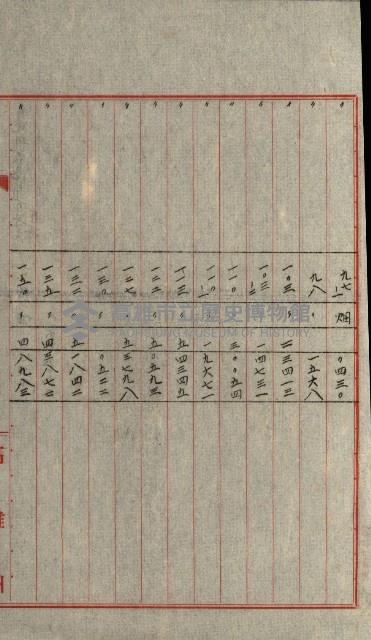 〃 九七ノ一 畑 〇四三〇
〃 九八 〃 一五六八
〃 一〇三 〃 二三四一三
〃 一〇三ノ二 〃 一四七三一
〃 一一〇 〃 三〇〇五四
〃 一一〇ノ一 〃 一九六七一
〃 一一三 〃 五四三四五
〃 一二二 〃 五〇五九三
〃 一二七 〃 五三七九八
〃 一三〇 〃 〇五二二
〃 一三二 〃 五一八四二
〃 一三五 〃 四三八七二
〃 一五〇 〃 四八九八三
高雄市立歷史博物館
KAOHSIUNG MUSEUM OF HISTORY
高雄